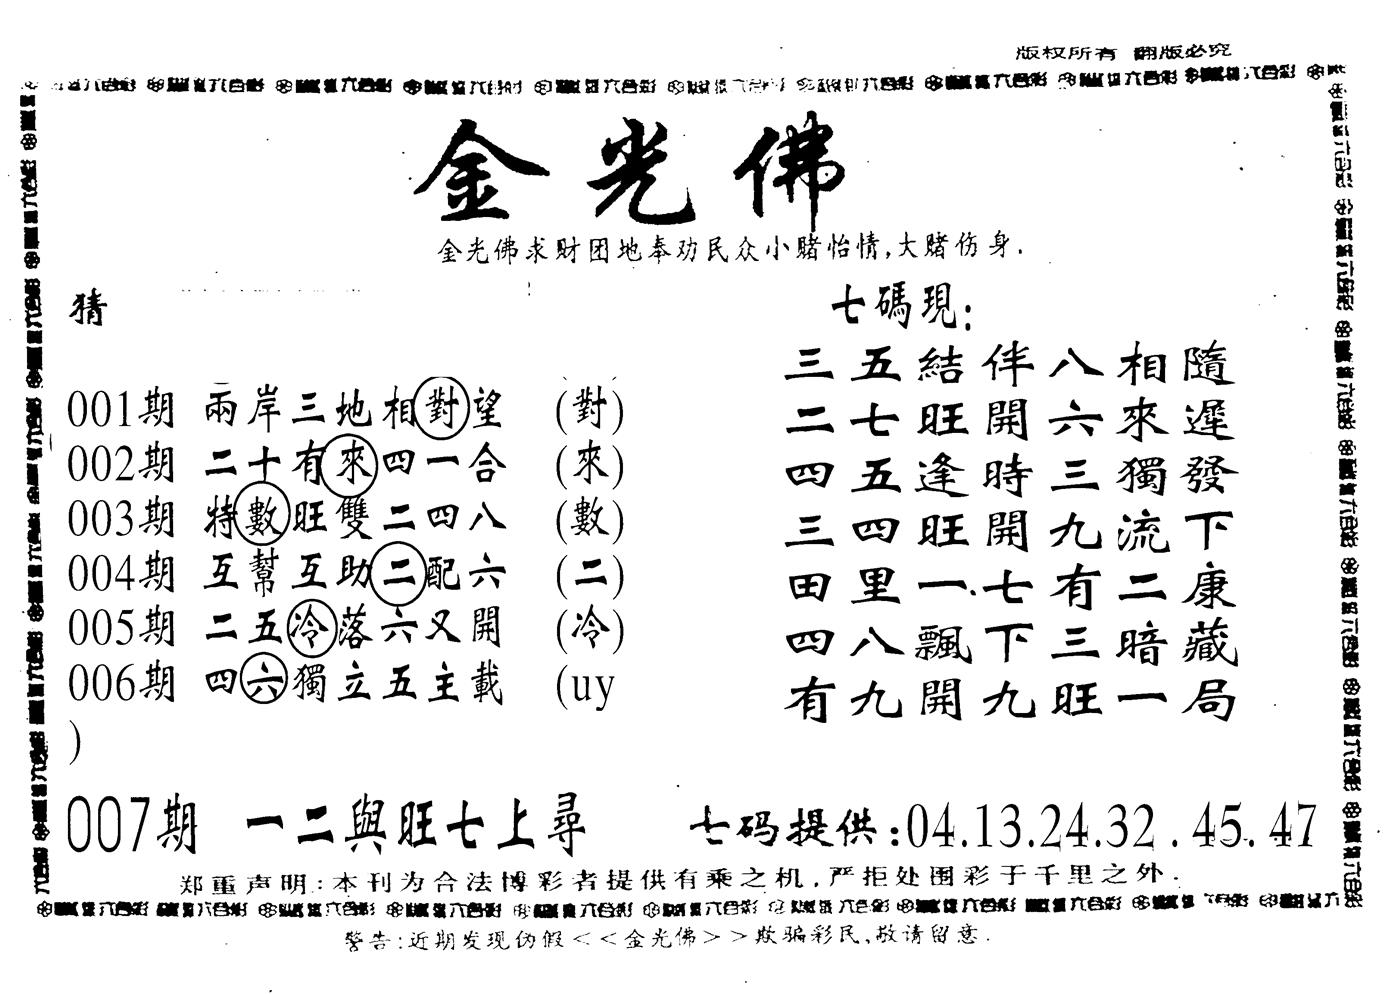 版权所有 翻版必究
金光佛
金光佛求财团地奉劝民众小赌怡情,大赌伤身.
猜
001期 兩岸三地相對望 (對)
002期 二十有來四一合 (來)
003期 特數旺雙二四八 (數)
004期 互幫互助二配六 (二)
005期 二五冷落六又開 (冷)
006期 四六獨立五主載 (uy
)
七碼現:
三五結伴八相隨
二七旺開六來遲
四五逢時三獨發
三四旺開九流下
田里一.七有二康
四八飄下三暗藏
有九開九旺一局
007期 一二與旺七上尋
七码提供:04.13.24.32.45.47
郑重声明:本刊为合法博彩者提供有乘之机,严拒处围彩于千里之外.
警告:近期发现伪假<<金光佛>>欺骗彩民,敬请留意.